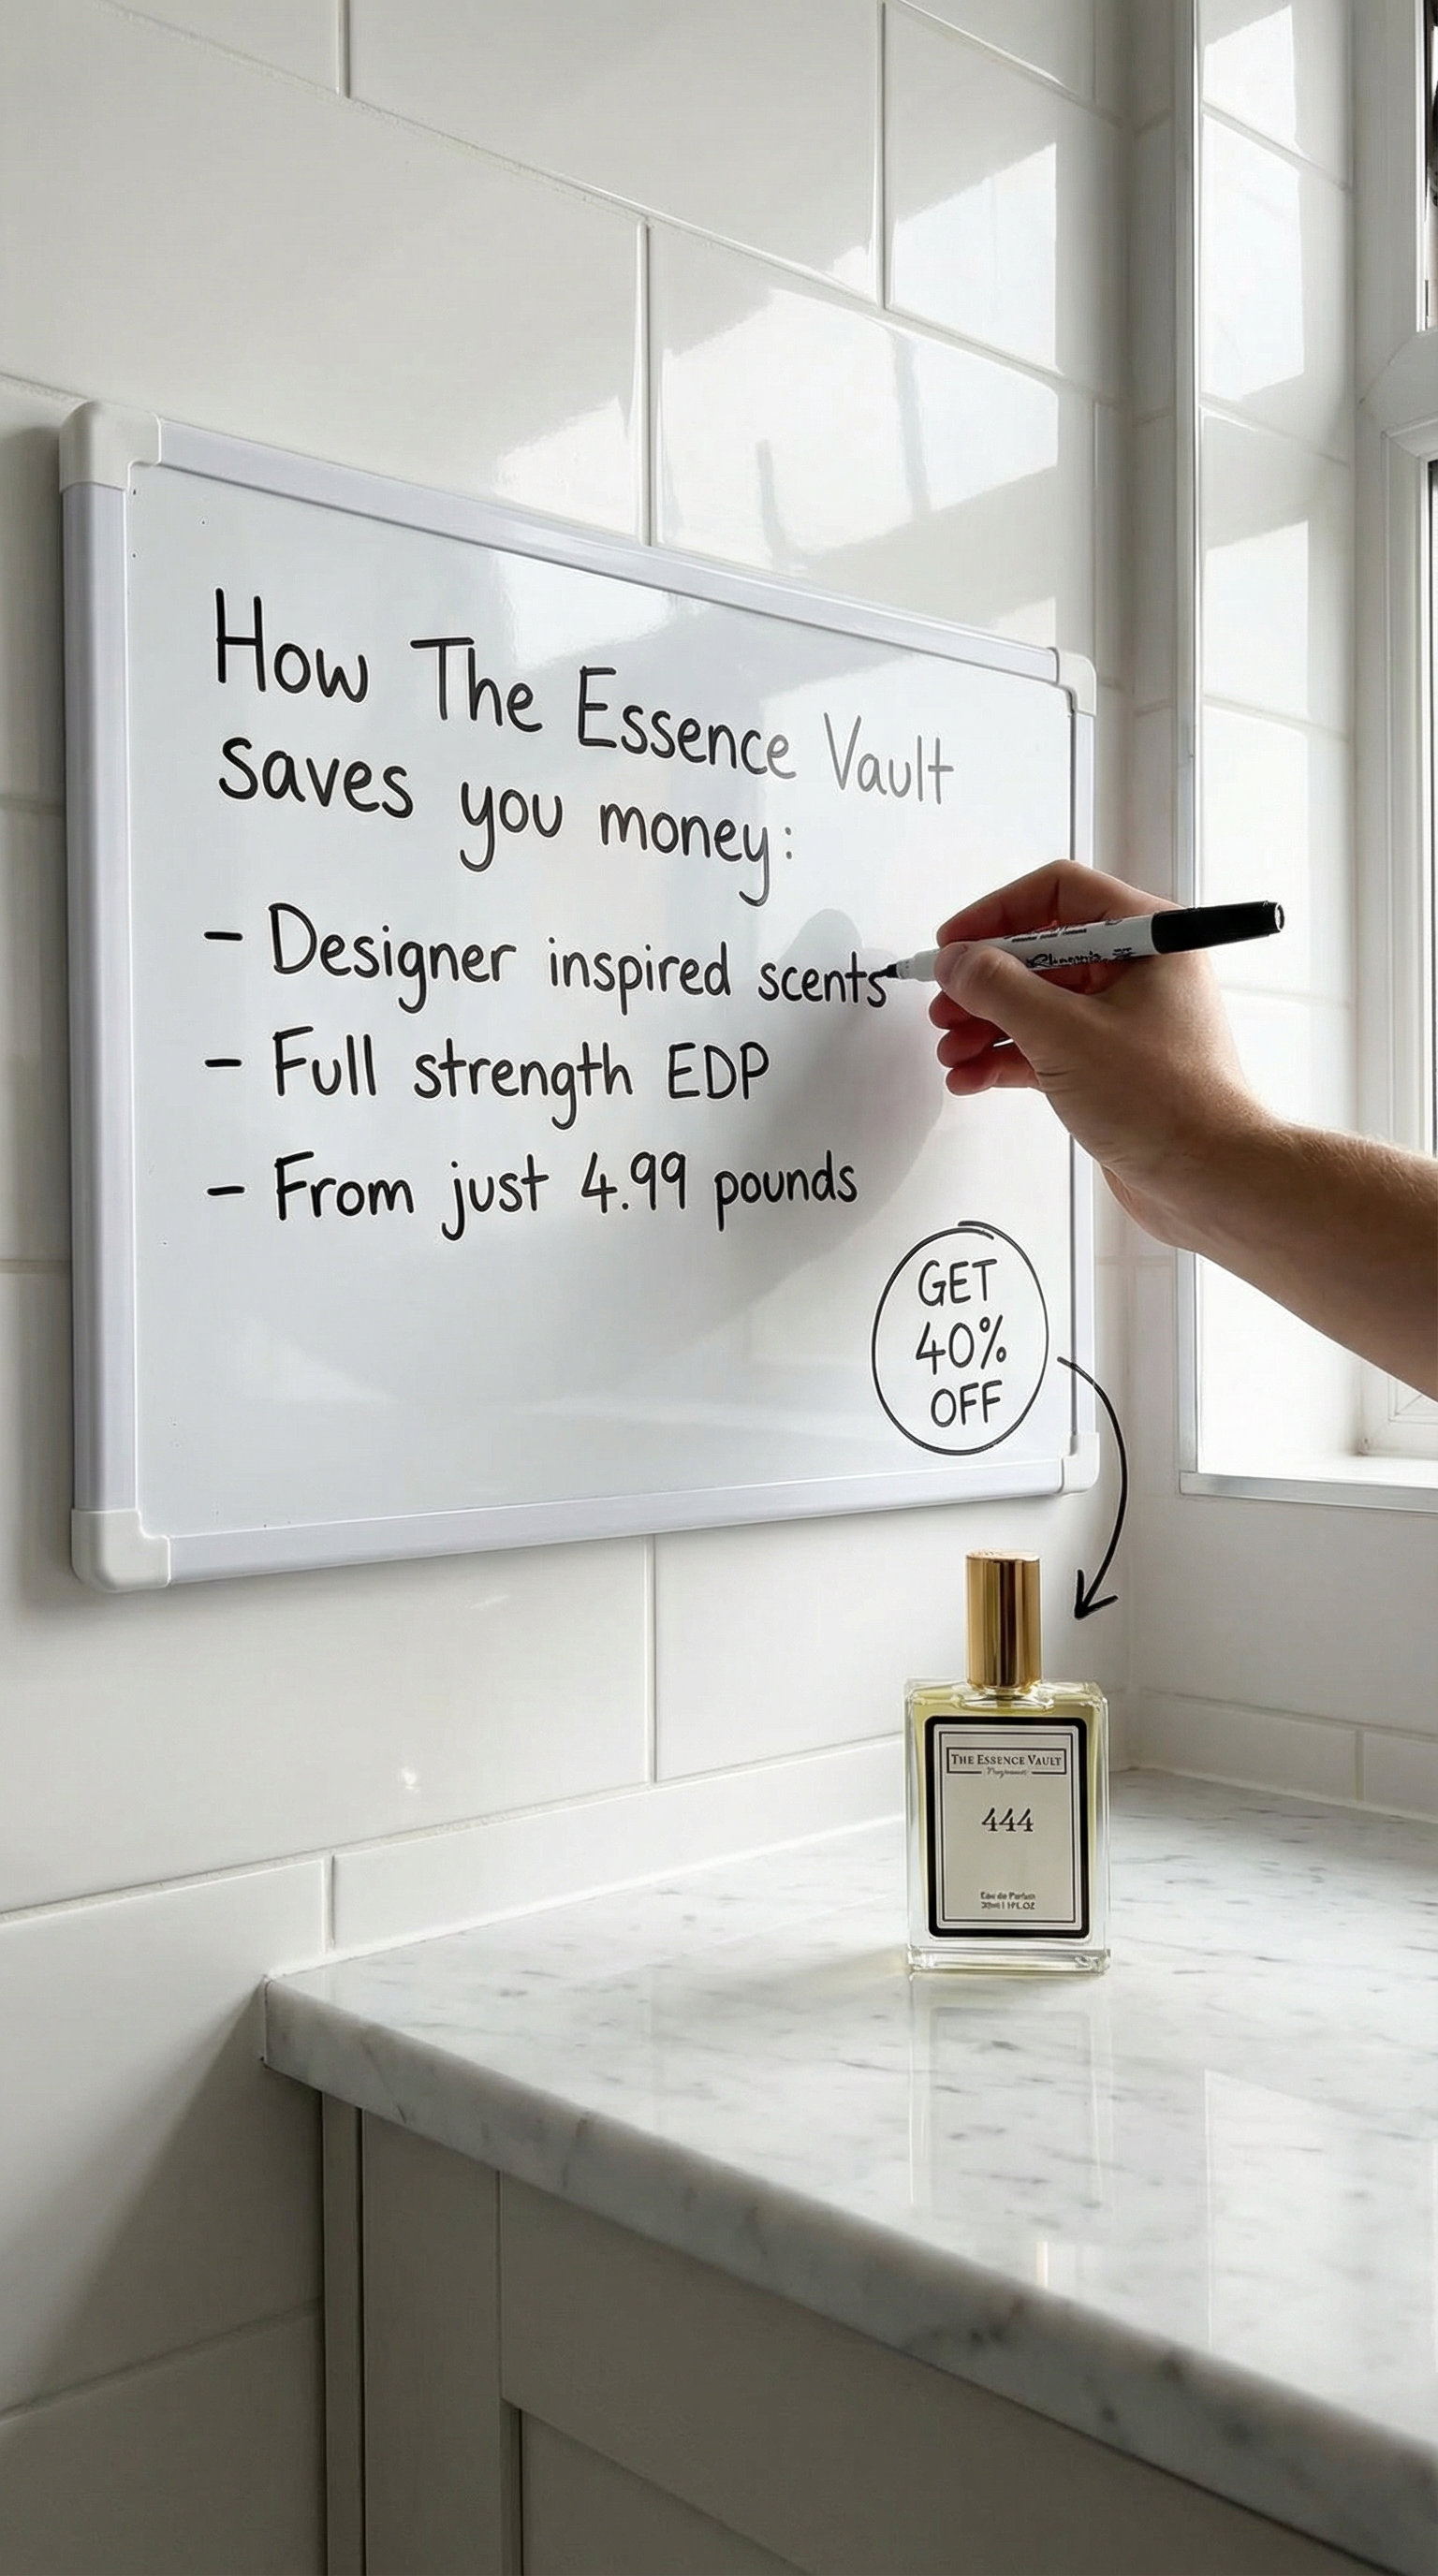 How The Essence Vault
saves you money:
- Designer inspired scents
- Full strength EDP
- From just 4.99 pounds
GET
40%
OFF
THE ESSENCE VAULT
444
Eau de Parfum